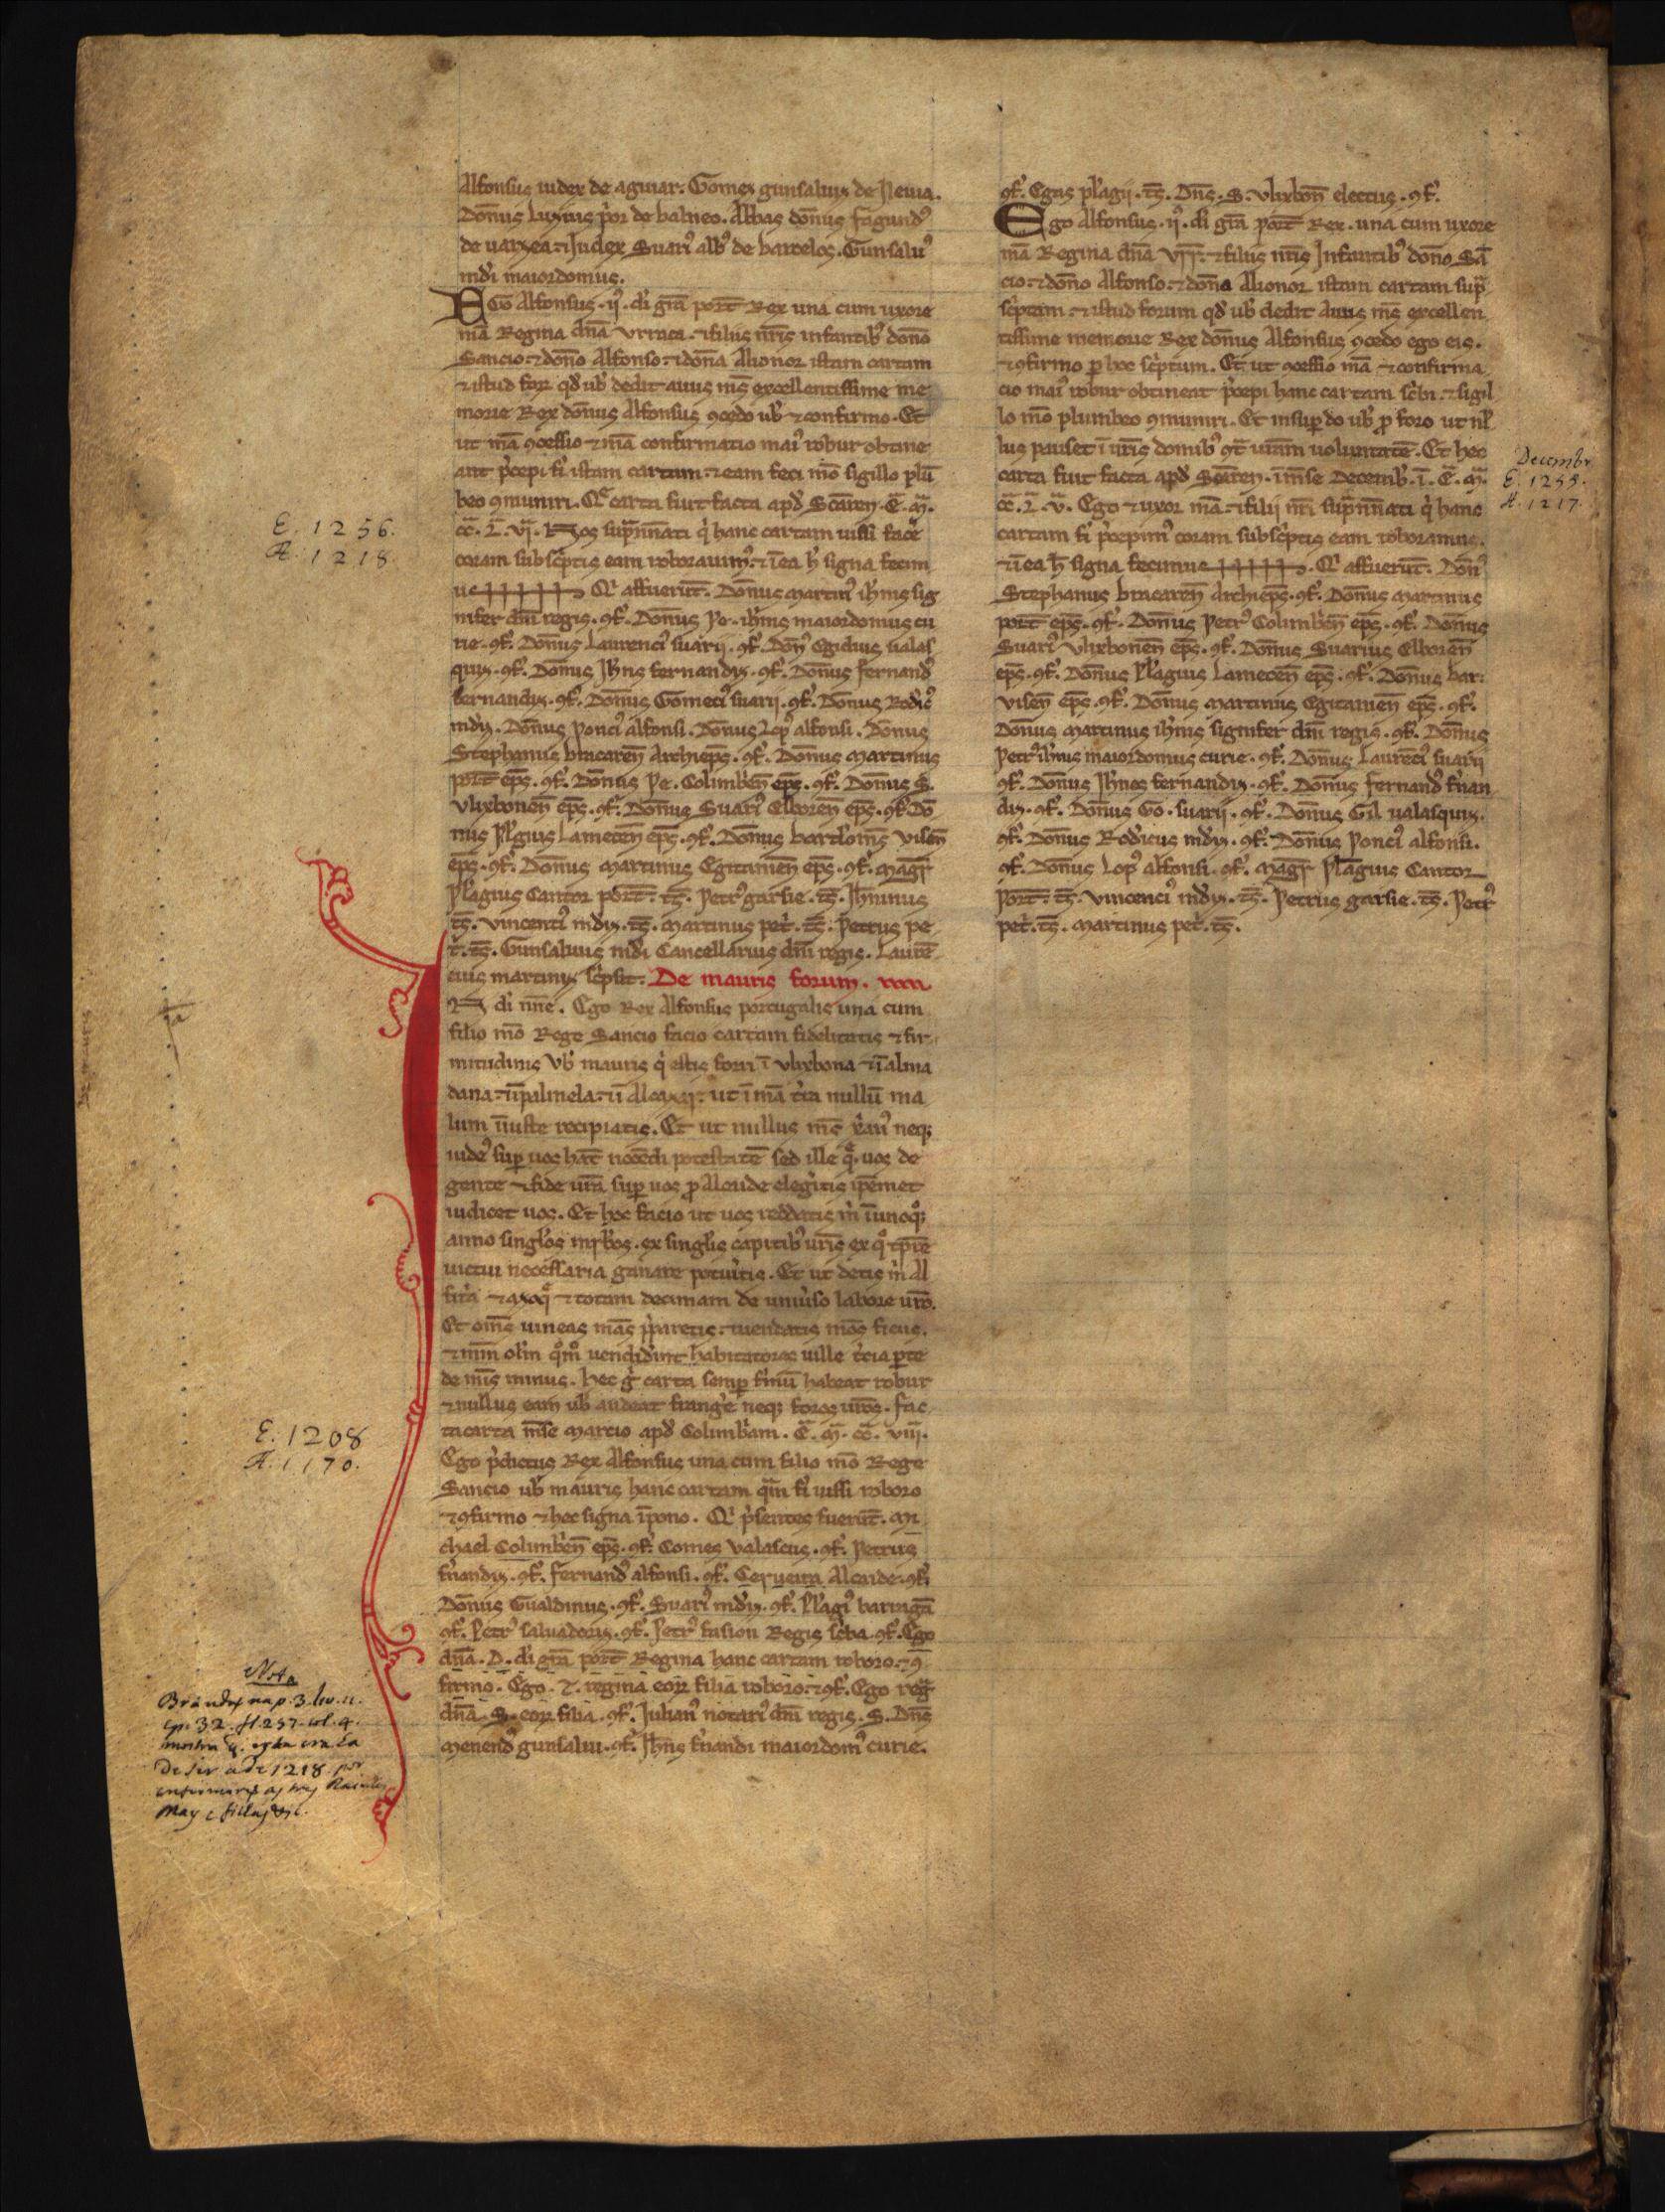 Alfonsus iudex de aguiar. Gomes gunsaluis de Neiua.
Donnus luzius p'or de balneo. Abbas donnus fagundꝰ
de uarzea. ⁊ Judex Suariꝰ alb' de barcelos. Gunsaluꝰ
m̄di maiordomus.
EGo Alfonsus .ijꝰ. d'i gr̄a port̄ Rex una cum uxore
mā Regina dn̄a vrraca. ⁊ filiis nr̄is infantibꝰ dōno
Sancio. ⁊ dōno Alfonso. ⁊ dōna Alionor istam cartam
⁊ istud for̄ qd' ub' dedit auus ms̄ excellentissime me
morie Rex dōnus Alfonsus ꝯcedo ub' ⁊ confirmo. Et
ut mā ꝯcessio ⁊ mā confirmatio maiꝰ robur obtine
ant p'cepi f'i istam cartam. ⁊ eam feci mō sigillo plū
beo ꝯmuniri. Q̄ carta fuit facta apd' Scāren. Ē. M̄.
CC̄. L̄. VĪ. Nos sup̄nn̄ati q' hanc cartam iussi fac'e
coram subsc'ptis eam roborauimꝰ. ⁊ ī ea h' signa fecim
us Q' affuerūt. Donnus martinꝰ ih'nis sig
nifer dn̄i regis. ꝯf'. Donnus Pe. ih'nis maiordomus cu
rie. ꝯf'. Donnus laurenciꝰ suarij. ꝯf'. Dōnꝰ Egidius ualas
quis. ꝯf'. Donnus Jh'ns fernandiz. ꝯf'. Donnus fernandꝰ
fernandiz. ꝯf'. Donnus Gomeciꝰ suarij. ꝯf'. Donnus Rod'icꝰ
m̄diz. Donnus Ponciꝰ alfonsi. Donnus Lopꝰ alfonsi. Donnus
Stephanus bracaren̄ Archiep̄s. ꝯf'. Donnus martinus
port̄ ep̄s. ꝯf'. Donnus Pe. Colimb'en̄ ep̄s. ꝯf'. Donnus S.
Vlixbonen̄ ep̄s. ꝯf'. Donnus Suariꝰ Elboren̄ ep̄s. ꝯf'. Dō
nus Pl'agius lamecen̄ ep̄s. ꝯf'. Donnus bartl'oms̄ Visen̄
ep̄s. ꝯf'. Donnus martinus Egitanien̄ ep̄s. ꝯf'. Magr̄
Pl'agius Cantor port̄. ts̄. Petrꝰ garsie. ts̄. Jh'ninus
ts̄. Vincentiꝰ m̄diz. ts̄. martinus pet'. ts̄. Petrus pe
t'. ts̄. Gunsaluus m̄di Cancellarius dn̄i regis. Laurē
cius martiniz sc'psit. De mauris forum.
IN d'i nn̄e. Ego Rex Alfonsus portugalis una cum
filio mō Rege Sancio facio cartam fidelitatis ⁊ fir
mitudinis Vb' mauris q' estis forri ī vlixbona ⁊ ī alma
dana. ⁊ ī palmela. ⁊ ī Alcazar. ut ī mā t'ra nullū ma
lum īiuste recipiatis. Et ut nullus ms̄ xp̄ianꝰ neqꝫ
iudeꝰ sup uos hāt nocēdi potestatē sed ille q̄ uos de
gente ⁊ fide ur̄a sup uos pro Alcaide eleg'itis ip̄emet
iudicet uos. Et hoc facio ut uos reddatis m' ī unoqꝫ
anno singl'os mr'bos. ex singl'is capitibꝰ ur̄is ex q° tp̄re
uictui necessaria ganare potu'itis. Et ut detis m' Al
fit'a ⁊ azoq̄ ⁊ totam decimam de uniu'so labore ur̄o.
Et om̄s uineas mās p'paretis. ⁊ uendatis mōs ficus.
de mīs minus. hec g' carta semp f'mū habeat robur
⁊ nullus eam ub' audeat frang'e neqꝫ foros ur̄os. fac
ta carta mēse marcio apd' Colimb'am. Ē. M̄. CC̄. VIIĪ.
Ego p'dictus Rex Alfonsus una cum filio mō Rege
Sancio ub' mauris hanc cartam qm̄ f'i iussi roboro
⁊ ꝯfirmo ⁊ hec signa īpono. Q' p'sentes fuerūt. Mi
chael Colimb'en̄ ep̄s. ꝯf'. Comes Valascus. ꝯf'. Petrus
f'nandiz. ꝯf'. fernandꝰ alfonsi. ꝯf'. Cerueira Alcaide. ꝯf'.
Donnus Gualdinus. ꝯf'. Suariꝰ m̄diz. ꝯf'. Pl'agiꝰ barragā
ꝯf'. Petrꝰ saluadoriz. ꝯf'. Petrꝰ fasion Regis sc'ba. ꝯf'. Ego
dn̄a. D. d'i gr̄a port̄ Regina hanc cartam roboro. ⁊ ꝯ
firmo. Ego. T. regina eorꝝ filia roboro. ⁊ ꝯf'. Ego reḡ
dn̄a. S. eorꝝ filia. ꝯf'. Julianꝰ notariꝰ dn̄i regis. S. Dn̄s
Menendꝰ gunsalui. ꝯf'. Jh'ns f'nandi maiordomꝰ curie.
ꝯf'. Egas pl'agij. ts̄. Dn̄s. S. vlixbon̄ electus. ꝯf'.
Ego Alfonsus .ijꝰ. d'i gr̄a port̄ Rex. una cum uxore
mā Regina dn̄a Vrr̄. ⁊ filiis nr̄is Jnfantibꝰ dōno Sā
cio. ⁊ dōno Alfonso. ⁊ dōna Alionor istam cartam sup̄
sc'ptam. ⁊ istud forum qd' ub' dedit Auus ms̄ excellen
tissime memorie Rex dōnus Alfonsus ꝯcedo ego eis.
⁊ ꝯfirmo p hoc sc'ptum. Et ut ꝯcessio mā ⁊ confirma
cio maiꝰ robur obtineat p'cepi hanc cartam sc'bi. ⁊ sigil
lo mō plumbeo ꝯmuniri. Et insup do ub' pro foro ut nl'
lus pauset ī ur̄is domibꝰ ꝯt̄ ur̄am uoluntatē. Et hec
carta fuit facta apd' Scāren. ī mēse Decemb'. ī. Ē. M̄.
CC̄. L̄. V̄. Ego ⁊ uxor mā. ⁊ filij nr̄i sup̄nn̄ati q' hanc
cartam f'i p'cepimꝰ coram subsc'ptis eam roboramus.
⁊ ī ea h' signa fecimus. Q' affuerūt. Dōnꝰ
Stephanus bracaren̄ Archiep̄s. ꝯf'. Donnus martinus
port̄ ep̄s. ꝯf'. Donnus Petrꝰ Colimb'en̄ ep̄s. ꝯf'. Donnus
Suariꝰ Vlixbonen̄ ep̄s. ꝯf'. Donnus Suarius Elboren̄
ep̄s. ꝯf'. Donnus Pl'agius lamecen̄ ep̄s. ꝯf'. Donnus bar.
Visen̄ ep̄s. ꝯf'. Donnus martinus Egitanien̄ ep̄s. ꝯf'.
Donnus martinus ih'nis signifer dn̄i regis. ꝯf'. Donnus
Petrꝰ ih'nis maiordomus curie. ꝯf'. Donnus Laurēciꝰ suarij
ꝯf'. Donnus Jh'nes fernandiz. ꝯf'. Donnus fernandꝰ f'nan
diz. ꝯf'. Donnus Go. suarij. ꝯf'. Donnus Gil ualasquis.
ꝯf'. Donnus Rod'icus m̄diz. ꝯf'. Donnus Ponciꝰ alfonsi.
ꝯf'. Donnus Lopꝰ alfonsi. ꝯf'. Magr̄ Pl'agius Cantor
port̄. ts̄. Vincenciꝰ m̄diz. ts̄. Petrus garsie. ts̄. Petrꝰ
pet'. ts̄. martinus pet'. ts̄.
E. 1256.
A. 1218.
E. 1208
A. 1170.
Nota
Decembr
E. 1255.
A. 1217.